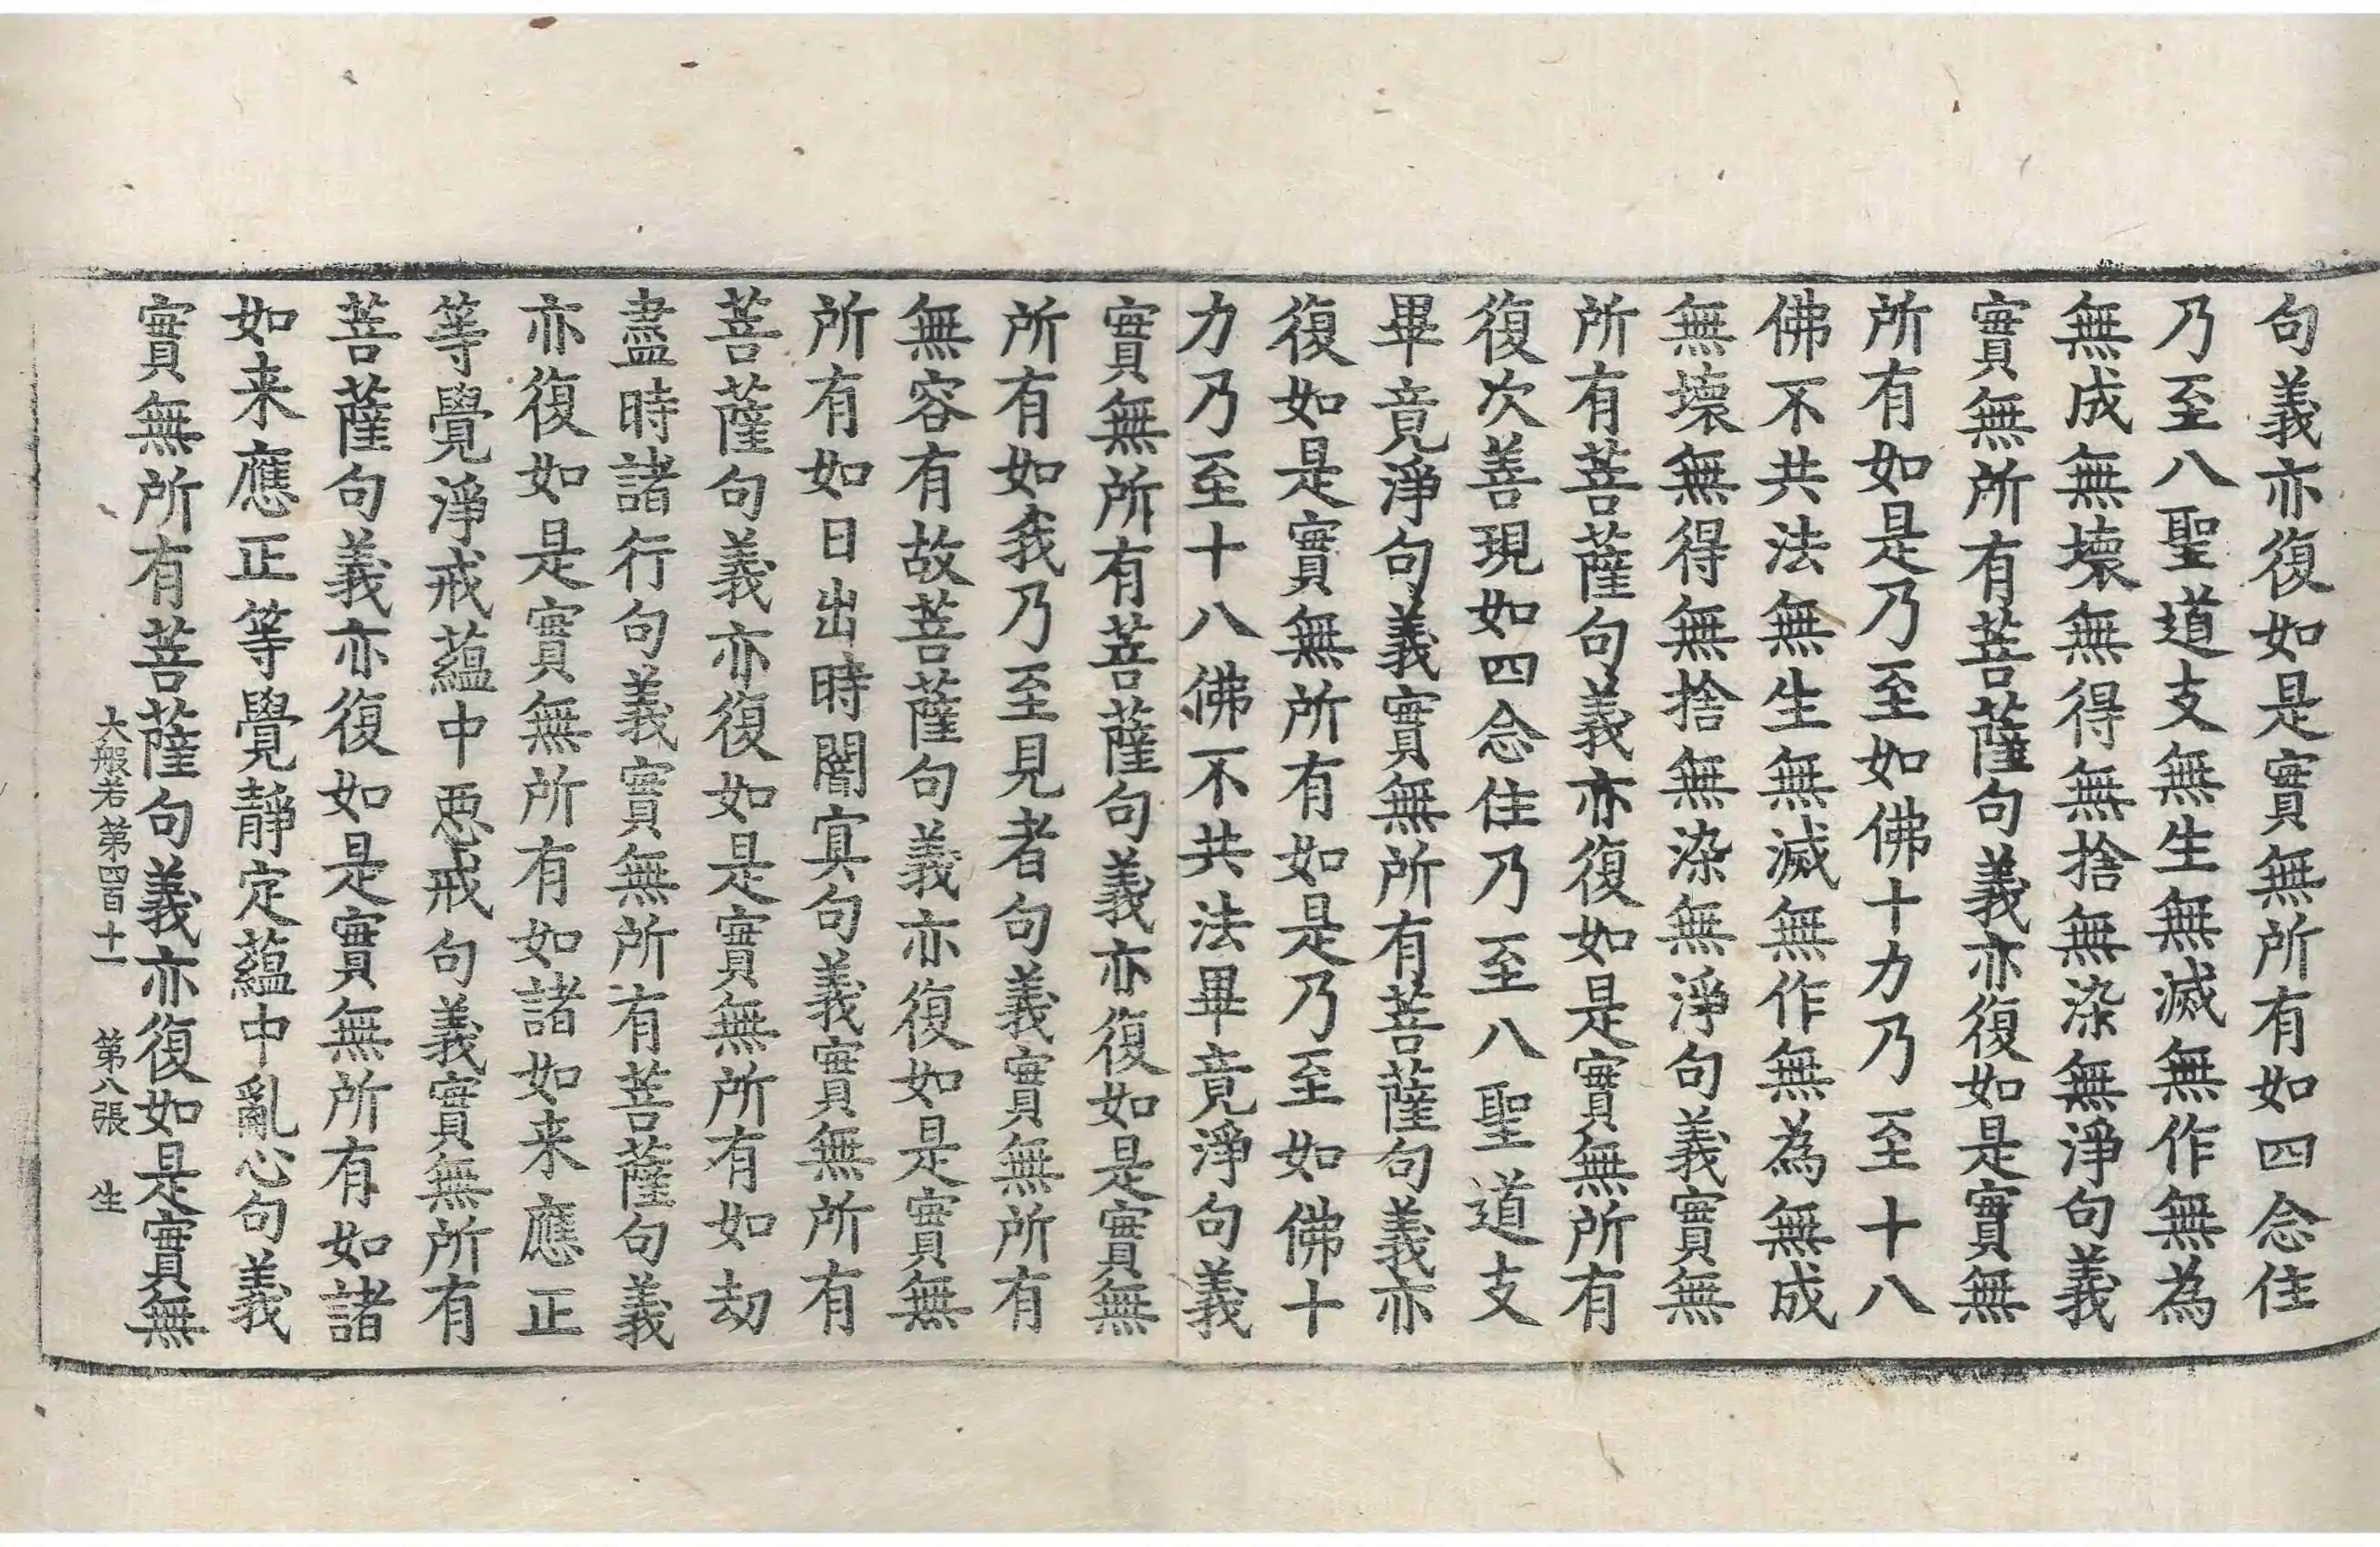 句義亦復如是實無所有如四念住
乃至八聖道支無生無滅無作無為
無成無壞無得無捨無染無淨句義
實無所有菩薩句義亦復如是實無
所有如是乃至如佛十力乃至十八
佛不共法無生無滅無作無為無成
無壞無得無捨無染無淨句義實無
所有菩薩句義亦復如是實無所有
復次善現如四念住乃至八聖道支
畢竟淨句義實無所有菩薩句義亦
復如是實無所有如是乃至如佛十
力乃至十八佛不共法畢竟淨句義
實無所有菩薩句義亦復如是實無
所有如我乃至見者句義實無所有
無容有故菩薩句義亦復如是實無
所有如日出時闇冥句義實無所有
菩薩句義亦復如是實無所有如劫
盡時諸行句義實無所有菩薩句義
亦復如是實無所有如諸如来應正
等覺淨戒蘊中惡戒句義實無所有
菩薩句義亦復如是實無所有如諸
如来應正等覺靜定蘊中亂心句義
實無所有菩薩句義亦復如是實無
大般若第四百十一 第八張 生